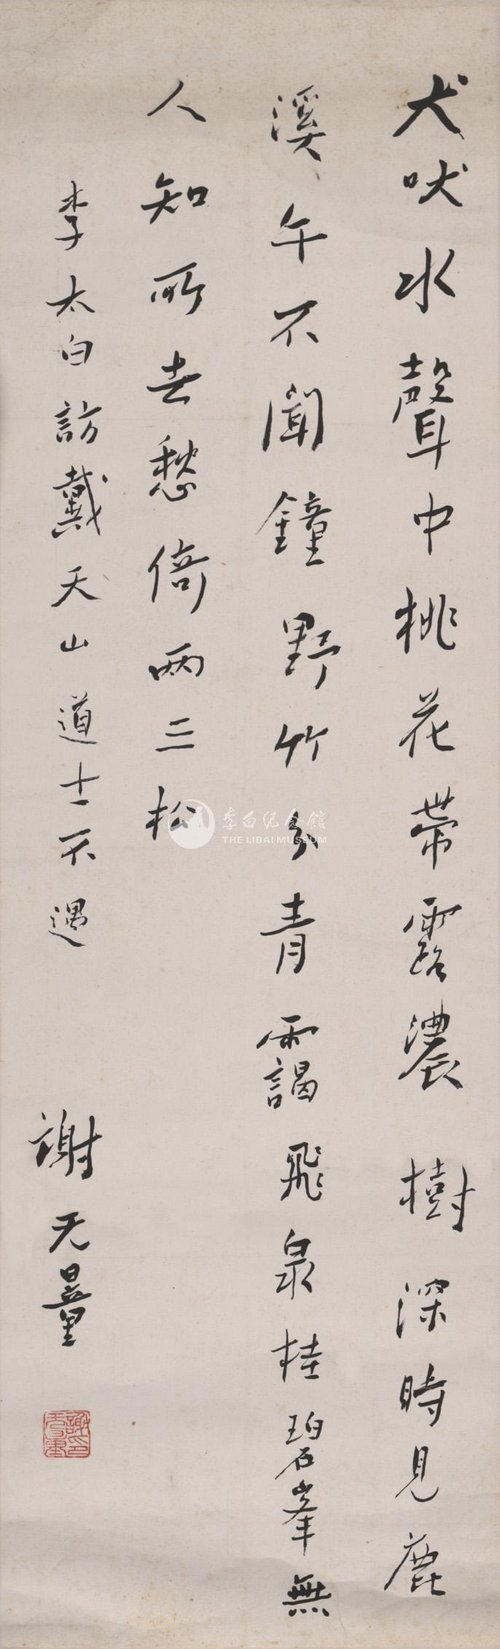 犬吠水聲中桃花帶露濃樹深時見鹿
溪午不聞鐘野竹分青靄飛泉挂碧峯無
人知所去愁倚兩三松
李太白訪戴天山道士不遇
謝无量
謝无量印
李白纪念馆
THE LIBAI MUSEUM